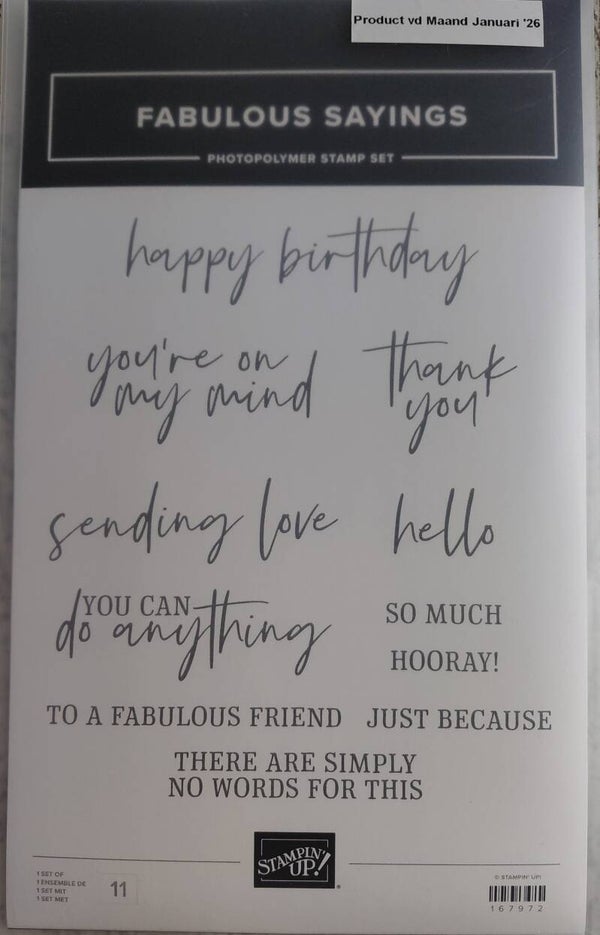 Product vd Maand Januari '26
FABULOUS SAYINGS
PHOTOPOLYMER STAMP SET
happy birthday
you're on
my mind
thank
you
sending love
hello
YOU CAN
do anything
SO MUCH
HOORAY!
TO A FABULOUS FRIEND
JUST BECAUSE
THERE ARE SIMPLY
NO WORDS FOR THIS
STAMPIN'
UP!
1 SET OF
1 ENSEMBLE DE
1 SET MIT
1 SET MET
11
© STAMPIN' UP!
167972